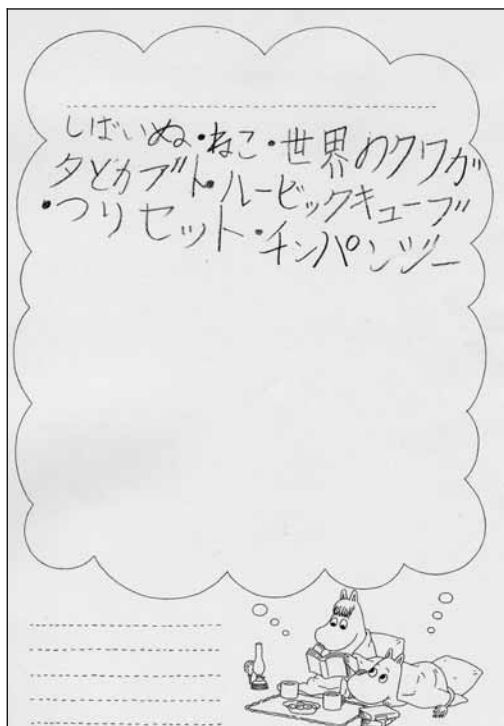 しばいぬ・ねこ・世界のクワガ
タとカブト・ルービックキューブ
・つりセット・チンパンジー